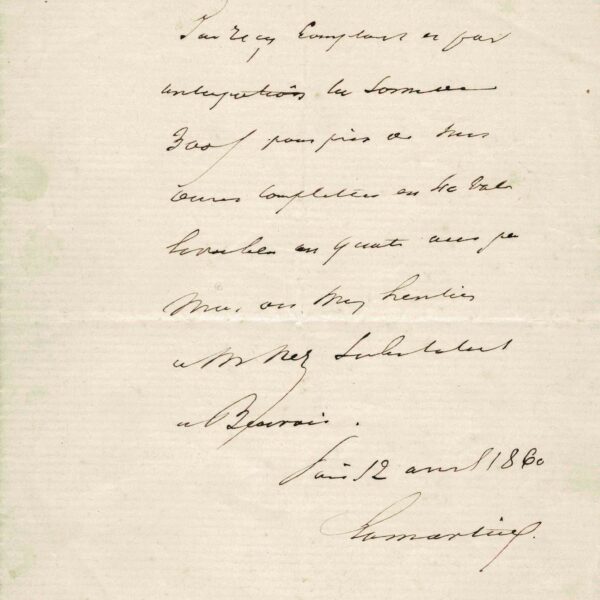 J'ai reçu comptant et par
anticipation la somme de
300 f pour prix de mes
œuvres complettes en 40 vol
livrables en quatre ans par
moi ou mes héritiers
a Mr Nez Substitut
a Beauvais.
Paris 12 avril 1860
Lamartine